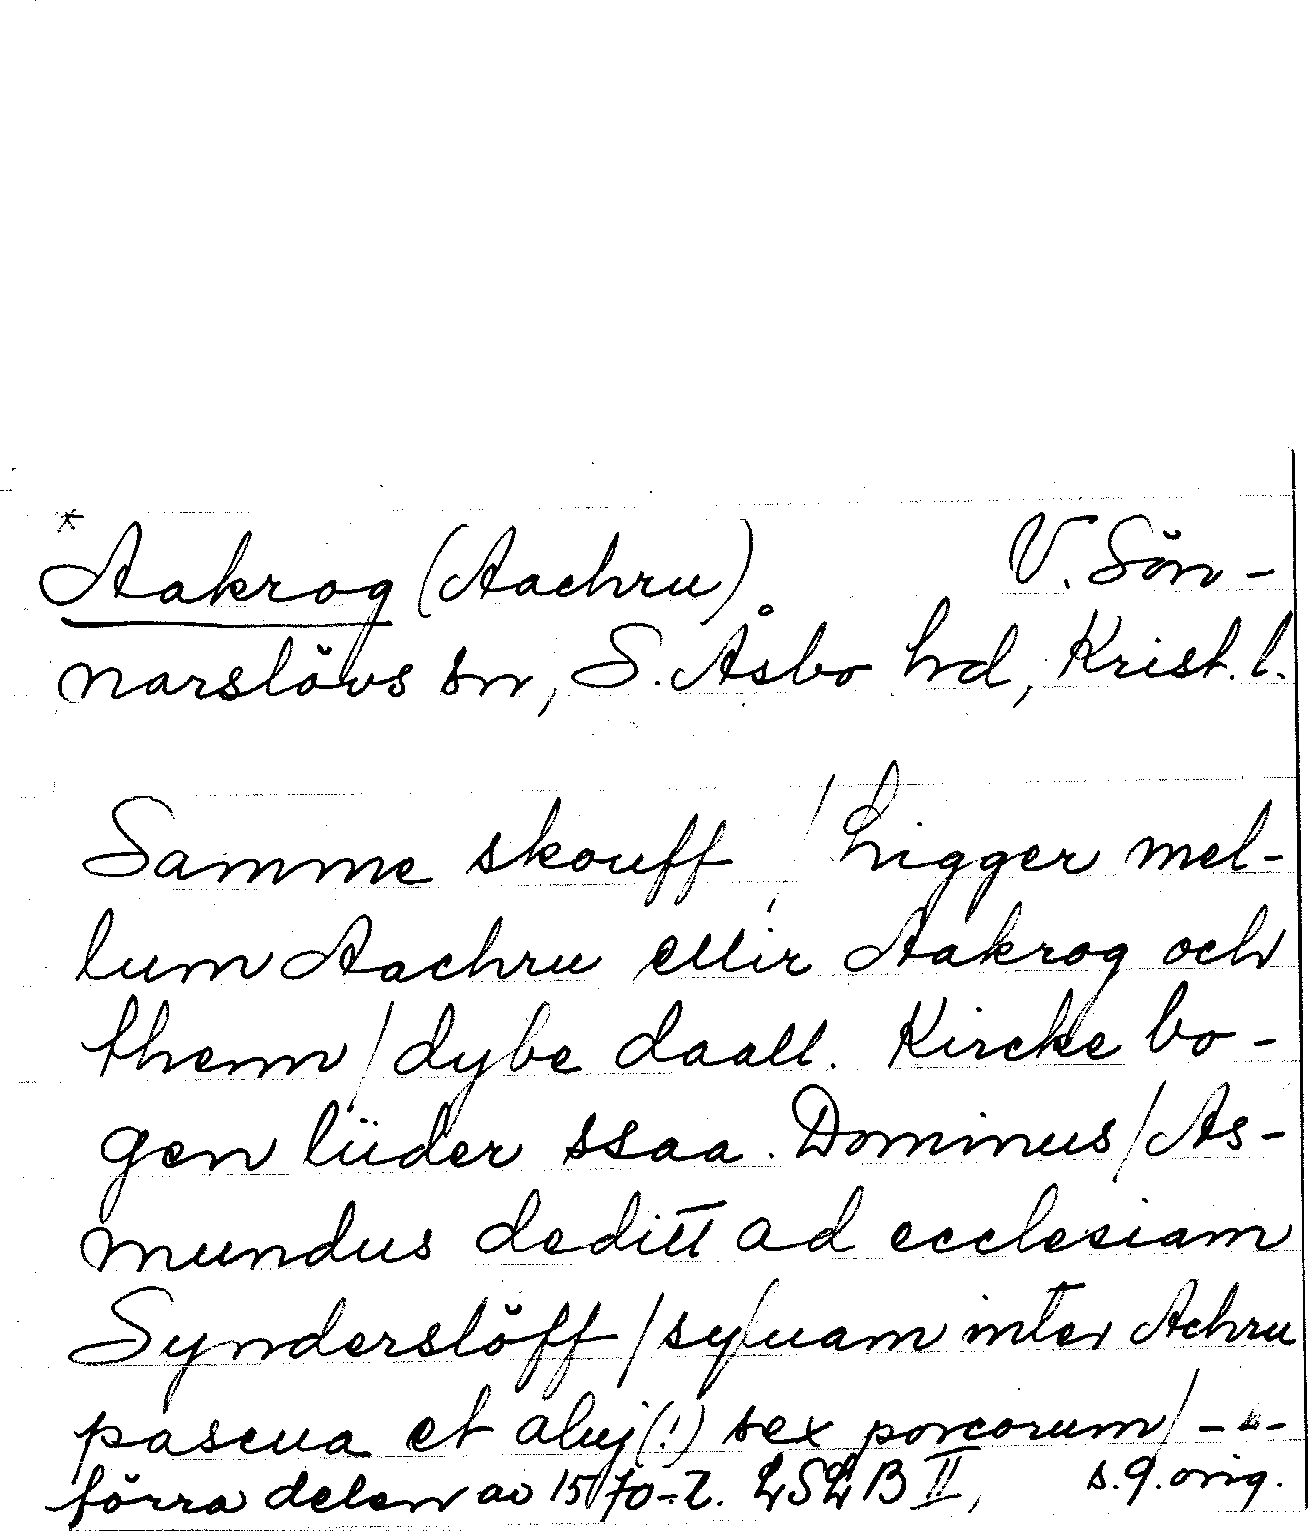 *
Aakrog (Aachru) V. Sön-
narslövs sn, S. Åsbo hd, Krist. l.
Samme skouff / Ligger mel-
lum Aachru ellir Aakrog och
them / dybe daall. Kircke bo-
gen lüder ssaa. Dominus / As-
mundus deditt ad ecclesiam
Synderslöff / syluam inter Achru
pascua et aluj (!) sex porcorum / - " -
förra delen av 1570-t. LSLB II, s. 9. orig.